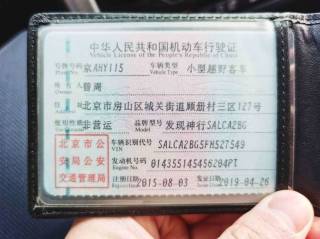 中华人民共和国机动车行驶证
Vehicle License of the People's Republic of China
号牌号码 京AHY115 车辆类型 小型越野客车
Plate No. Vehicle Type
所有人
Owner
住址 北京市房山区城关街道顺册村三区127号
Address
使用性质 非营运 品牌型号 发现神行SALCA2BG
Use Character Model
北京市公 车辆识别代号 SALCA2BG5FH527549
安局公安 VIN
交通管理局 发动机号码 014355145456204PT
Engine No.
注册日期 2015-08-03 发证日期 2019-04-26
Register Date Issue Date